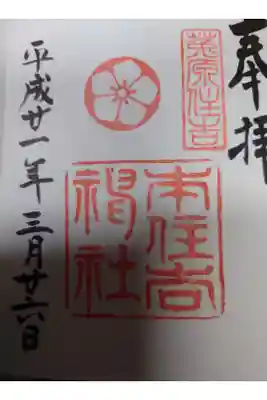 奉拝
菟原住吉
本住吉
神社
平成廿一年三月廿六日